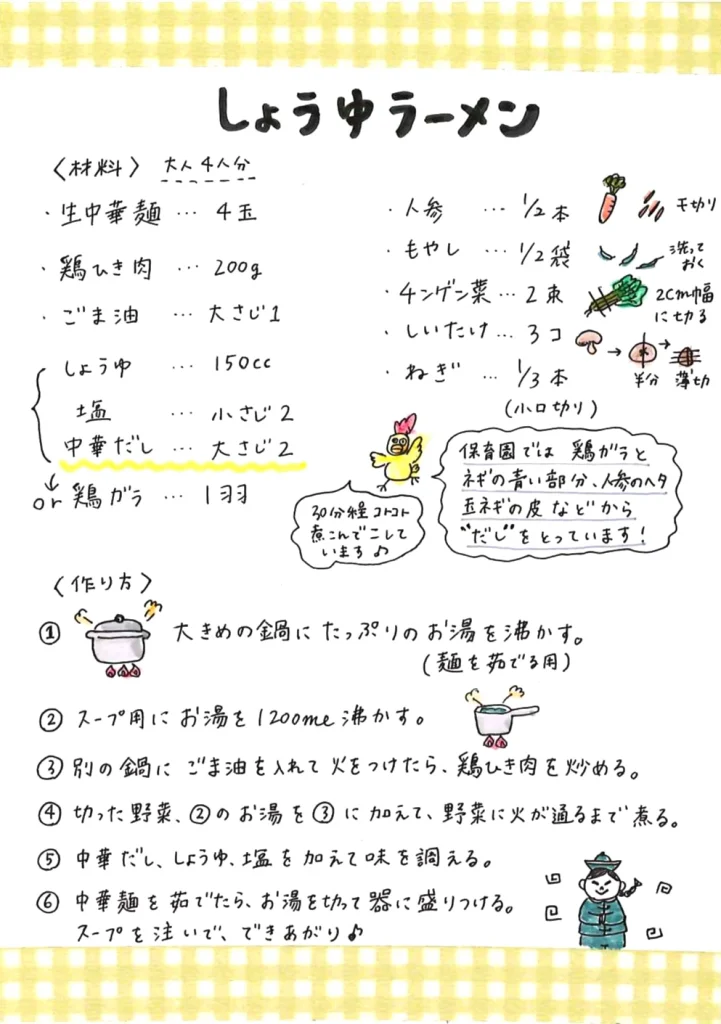 しょうゆラーメン
〈材料〉 大人4人分
・生中華麺 … 4玉
・鶏ひき肉 … 200g
・ごま油 … 大さじ1
しょうゆ … 150cc
塩 … 小さじ2
中華だし … 大さじ2
or 鶏ガラ … 1羽
・人参 … 1/2本 千切り
・もやし … 1/2袋 洗って
おく
・チンゲン菜 … 2束 2cm幅
に切る
・しいたけ … 3コ
半分 薄切
・ねぎ … 1/3本
(小口切り)
保育園では 鶏ガラと
ネギの青い部分、人参のヘタ
玉ネギの皮などから
"だし"をとっています!
30分程コトコト
煮こんでこして
います♪
〈作り方〉
① 大きめの鍋にたっぷりのお湯を沸かす。
(麺を茹でる用)
② スープ用にお湯を1200ml沸かす。
③ 別の鍋に ごま油を入れて火をつけたら、鶏ひき肉を炒める。
④ 切った野菜、②のお湯を③に加えて、野菜に火が通るまで煮る。
⑤ 中華だし、しょうゆ、塩を加えて味を調える。
⑥ 中華麺を茹でたら、お湯を切って器に盛りつける。
スープを注いで、できあがり♪